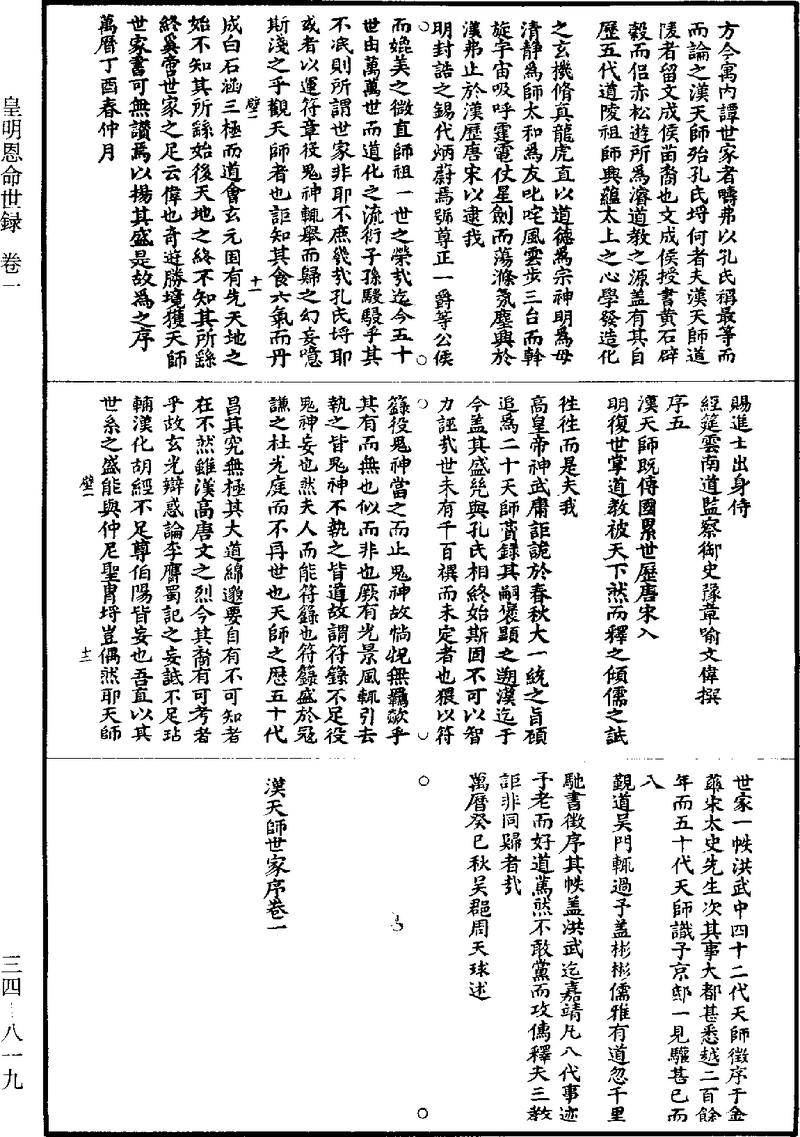 方今寓內譚世家者疇弗以孔氏稱最等而
而論之漢天師殆孔氏埒何者夫漢天師道
陵者留文成侯苗裔也文成侯授書黃石辟
穀而侶赤松遊所為濬道教之源盖有其自
歷五代道陵祖師興蘊太上之心學發造化
之玄機脩真龍虎直以道德為宗神明為母
清静為師太和為友叱咤風雲步三台而斡
旋宇宙吸呼霆電仗星劍而蕩滌氛塵興於
漢弗止於漢歷唐宋以逮我
明封誥之錫代炳蔚焉號尊正一爵等公侯
而媲美之微直師祖一世之榮㦲迄今五十
世由萬萬世而道化之流衍子孫駸駸乎其
不泯則所謂世家非耶不庶幾㦲孔氏埒耶
或者以運符章役鬼神輒舉而歸之幻妄噫
斯淺之乎觀天師者也詎知其食六氣而丹
成白石涵三極而道會玄元固有先天地之
始不知其所繇始後天地之終不知其所繇
終奚啻世家之足云偉也奇遊勝境獲天師
世家書可無讚焉以揚其盛是故為之序
萬曆丁酉春仲月
壁一
十一
賜進士出身侍
經筵雲南道監察御史豫章喻文偉撰
序五
漢天師既傳國累世歷唐宋入
明復世掌道教被天下然而釋之傾儒之詆
徃徃而是夫我
高皇帝神武庸詎詭於春秋大一統之旨頋
追為二十天師賷録其嗣褒顯之遡漢迄于
今盖其盛㡬與孔氏相終始斯固不可以智
力誣㦲世未有千百禩而未定者也猥以符
籙役鬼神當之而止鬼神故惝怳無羈欻乎
其有而無也似而非也厥有光景風輒引去
執之皆鬼神不執之皆道故謂符籙不足役
鬼神妄也然夫人而能符籙也符籙盛於冦
謙之杜光庭而不再世也天師之歷五十代
昌其究無極其大道綿邈要自有不可知者
在不然雖漢高唐文之烈今其裔有可考者
乎故玄光辯惑論李膺蜀記之妄詆不足玷
輔漢化胡經不足尊伯陽皆妄也吾直以其
世系之盛能與仲尼聖胄埒豈偶然耶天師
壁一
十二
世家一帙洪武中四十二代天師徴序于金
華宋太史先生次其事大都甚悉越二百餘
年而五十代天師識予京邸一見驩甚已而
入
覲道吴門輒過予盖彬彬儒雅有道忽千里
馳書徴序其帙盖洪武迄嘉靖凡八代事迹
予老而好道萬然不敢黨而攻儁釋夫三教
詎非同歸者㦲
萬曆癸巳秋吴郡周天球述
漢天師世家序卷一
皇明恩命世録 卷一
三四—八一九